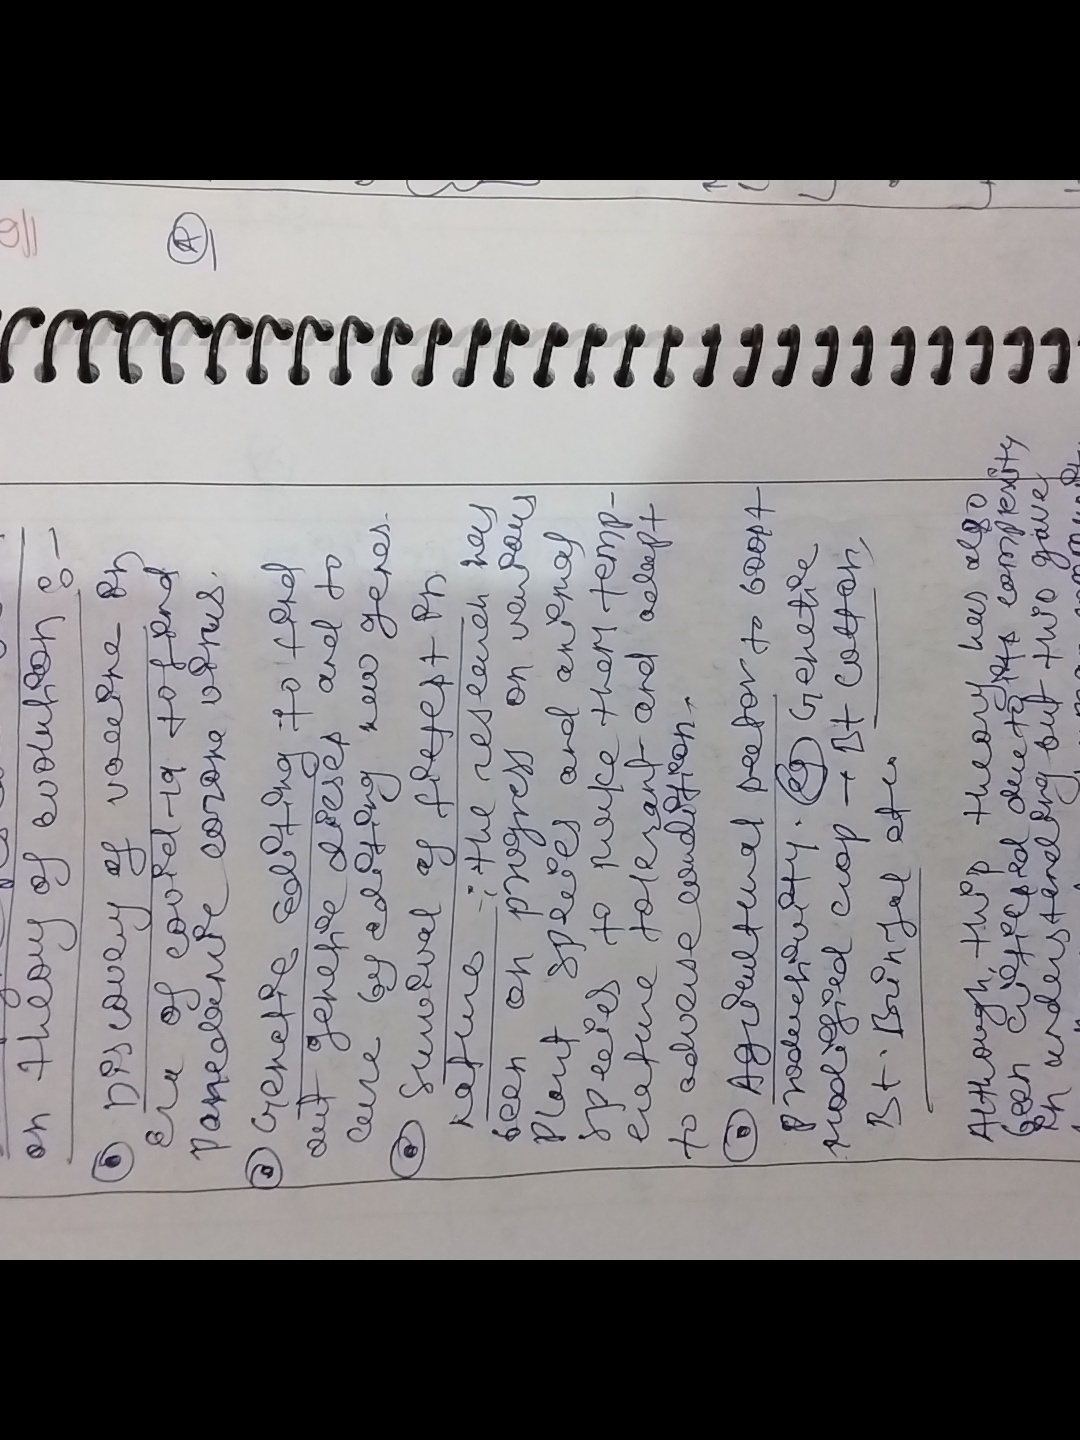 on theory of evolution :-
Discovery of vaccine in
Era of covid-19 to fend
pandemic corone virus.
Genetic editing to tend
out genetic dieses and to
cure by editing new genes.
Survival of fittest in
nature :- the research has
been on progress on various
plant species and animal
species to make them temp-
erature tolerant and adept
to adverse condition.
Agricultural sector to boost
productivity. eg Genetic
modified crop → Bt cotton,
Bt. Brinjal etc.
Although, this theory has also
been criticised due to its complexity
in understanding but this gave